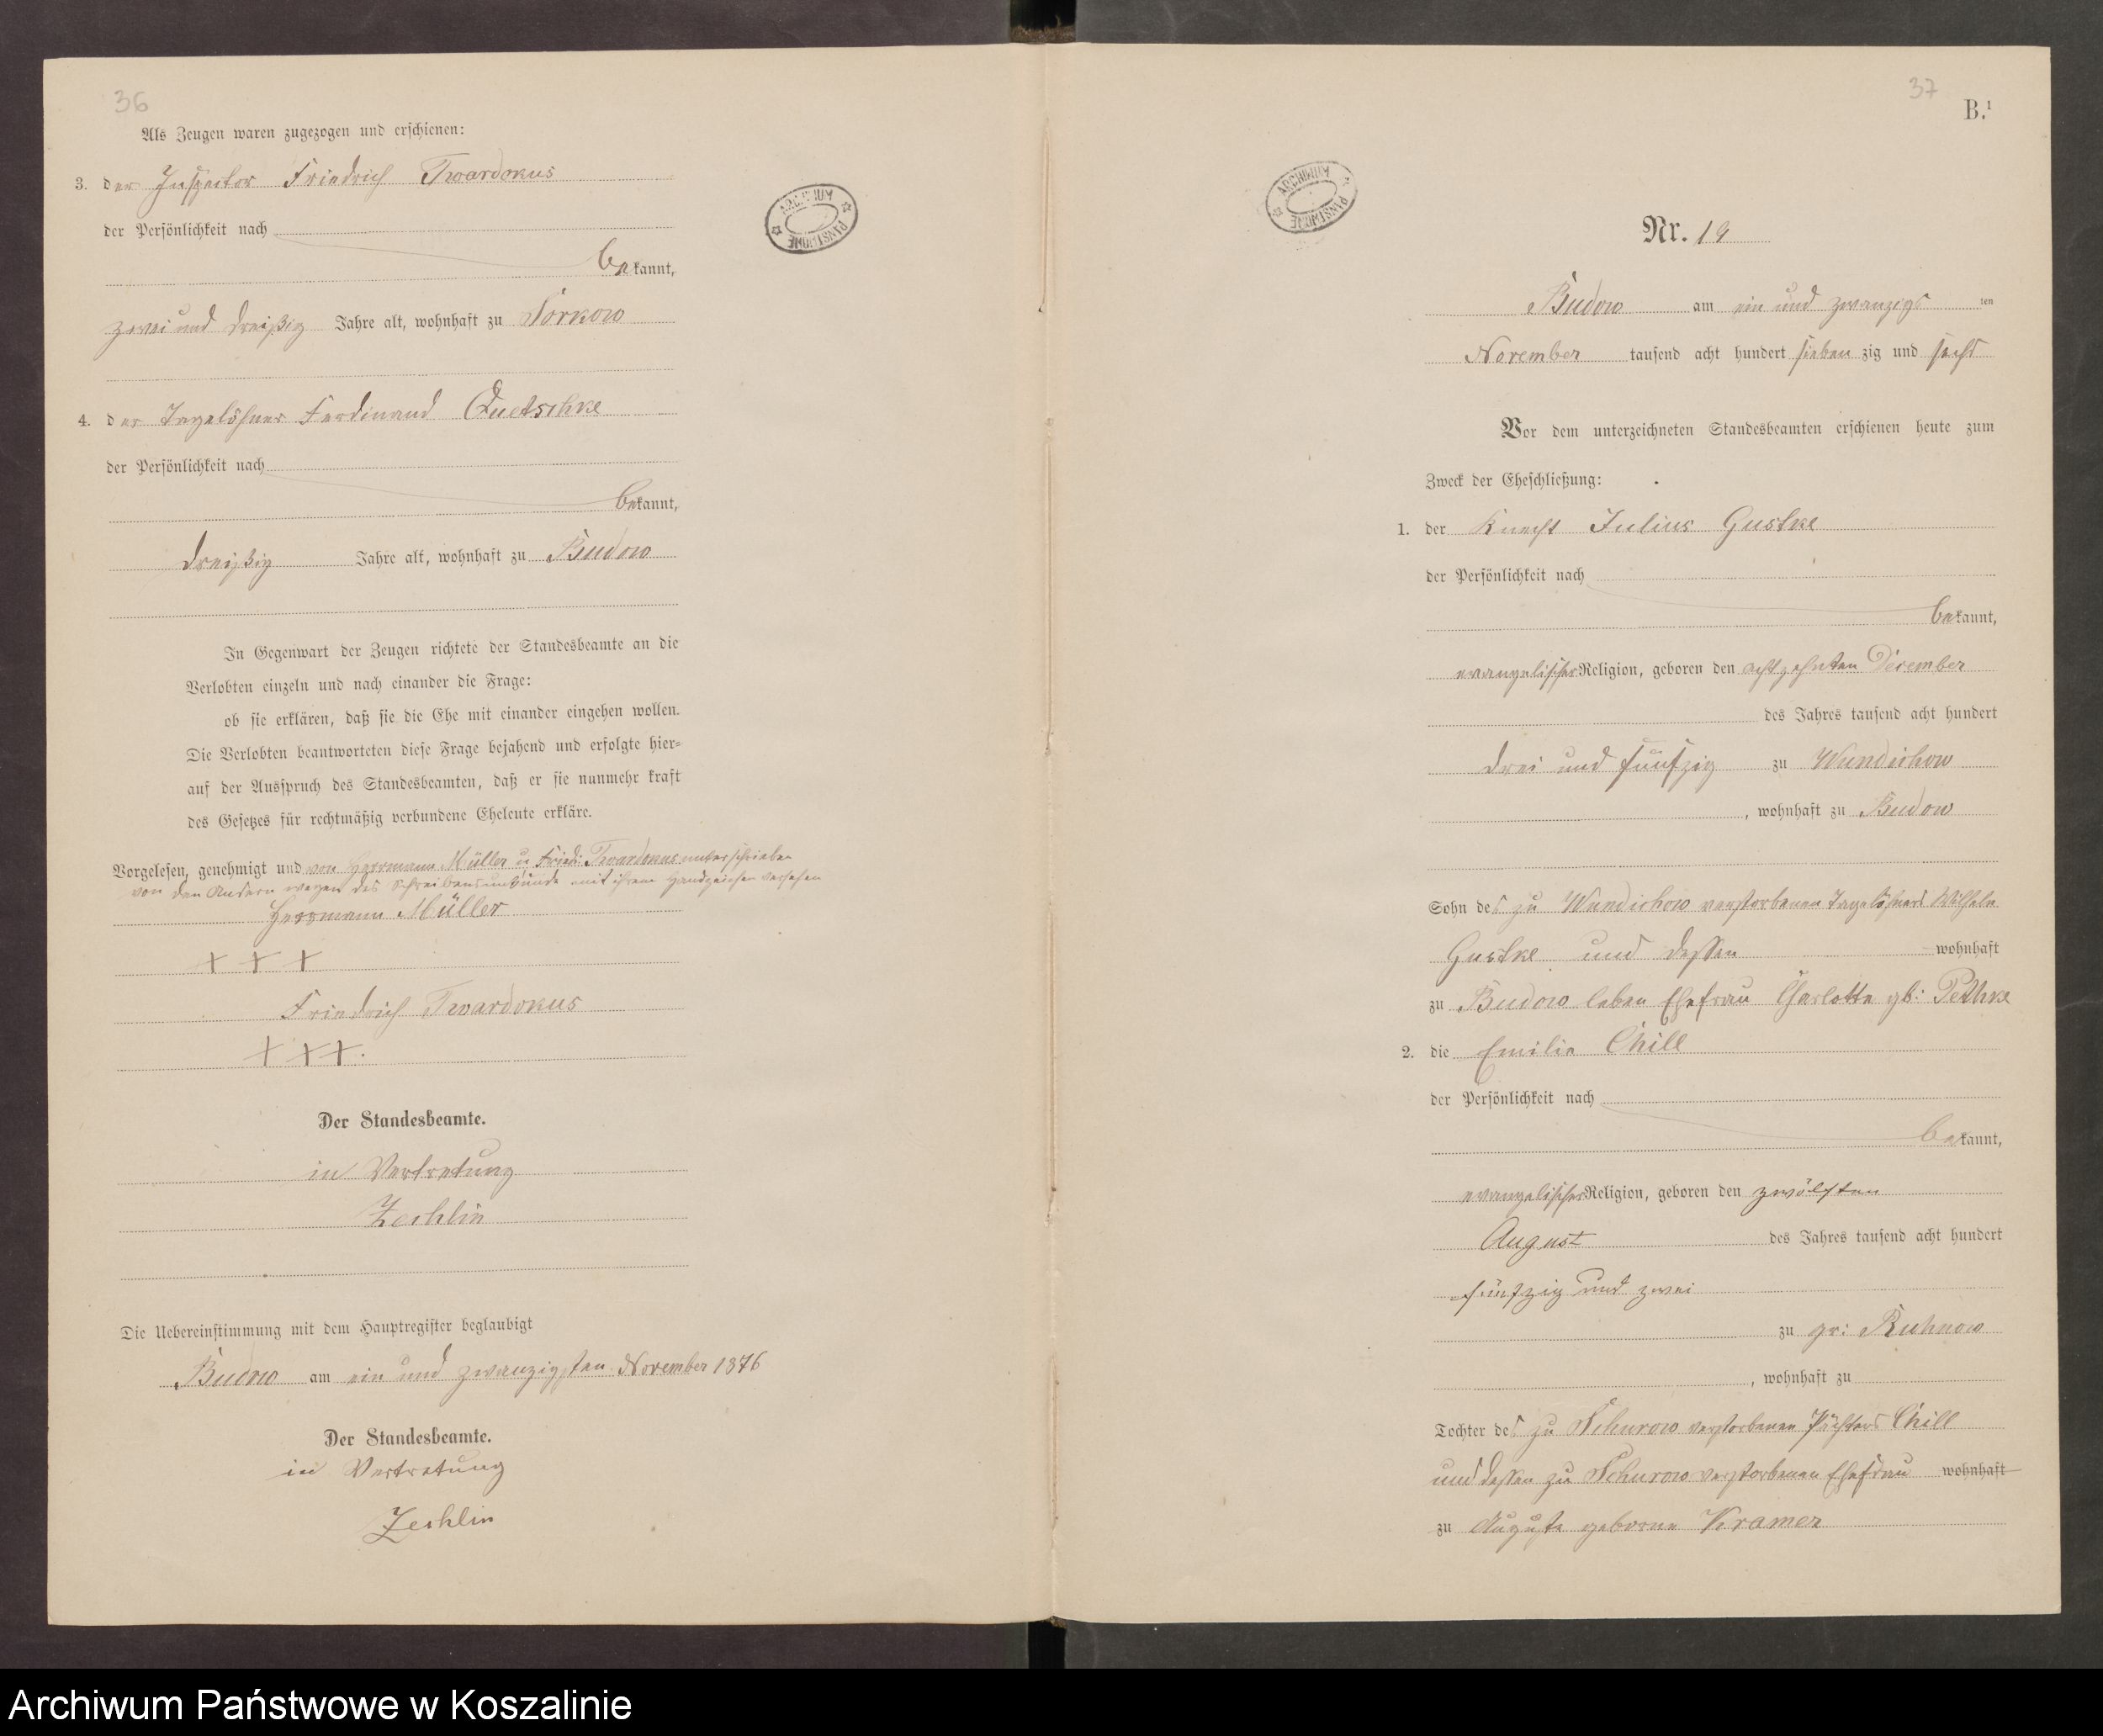 36
Als Zeugen waren zugezogen und erschienen:
3. der Inspector Friedrich Twardokus
der Persönlichkeit nach
bekannt,
zwei und dreißig Jahre alt, wohnhaft zu Torkow
4. der Tagelöhner Ferdinand Quetschke
der Persönlichkeit nach
bekannt,
dreißig Jahre alt, wohnhaft zu Budow
In Gegenwart der Zeugen richtete der Standesbeamte an die
Verlobten einzeln und nach einander die Frage:
ob sie erklären, daß sie die Ehe mit einander eingehen wollen.
Die Verlobten beantworteten diese Frage bejahend und erfolgte hier-
auf der Ausspruch des Standesbeamten, daß er sie nunmehr kraft
des Gesetzes für rechtmäßig verbundene Eheleute erkläre.
Vorgelesen, genehmigt und von Herrmann Müller u Fried: Twardokus unterschrieben
von den Andern wegen des Schreibensunkunde mit ihrem Handzeichen versehen
Herrmann Müller
+ + +
Friedrich Twardokus
+ + +.
Der Standesbeamte.
in Vertretung
Zechlin
Die Uebereinstimmung mit dem Hauptregister beglaubigt
Budow am ein und zwanzigsten November 1876
Der Standesbeamte.
in Vertretung
Zechlin
ARCHIWUM PAŃSTWOWE
37
B.¹
ARCHIWUM PAŃSTWOWE
Nr. 19
Budow am ein und zwanzigs ten
November tausend acht hundert sieben zig und sechs
Vor dem unterzeichneten Standesbeamten erschienen heute zum
Zweck der Eheschließung:
1. der Knecht Julius Gustke
der Persönlichkeit nach
bekannt,
evangelischer Religion, geboren den achtzehnten December
des Jahres tausend acht hundert
drei und fünfzig zu Wundichow
, wohnhaft zu Budow
Sohn des zu Wundichow verstorbenen Tagelöhners Wilhelm
Gustke und dessen wohnhaft
zu Budow leben Ehefrau Charlotte gb: Pethke
2. die Emilie Chill
der Persönlichkeit nach
bekannt,
evangelischer Religion, geboren den zwölften
August des Jahres tausend acht hundert
fünfzig und zwei
zu gr: Ruhnow
, wohnhaft zu
Tochter des zu Schurow verstorbenen Pächters Chill
und dessen zu Schurow verstorbenen Ehefrau wohnhaft
zu Auguste geborne Kramer
Archiwum Państwowe w Koszalinie